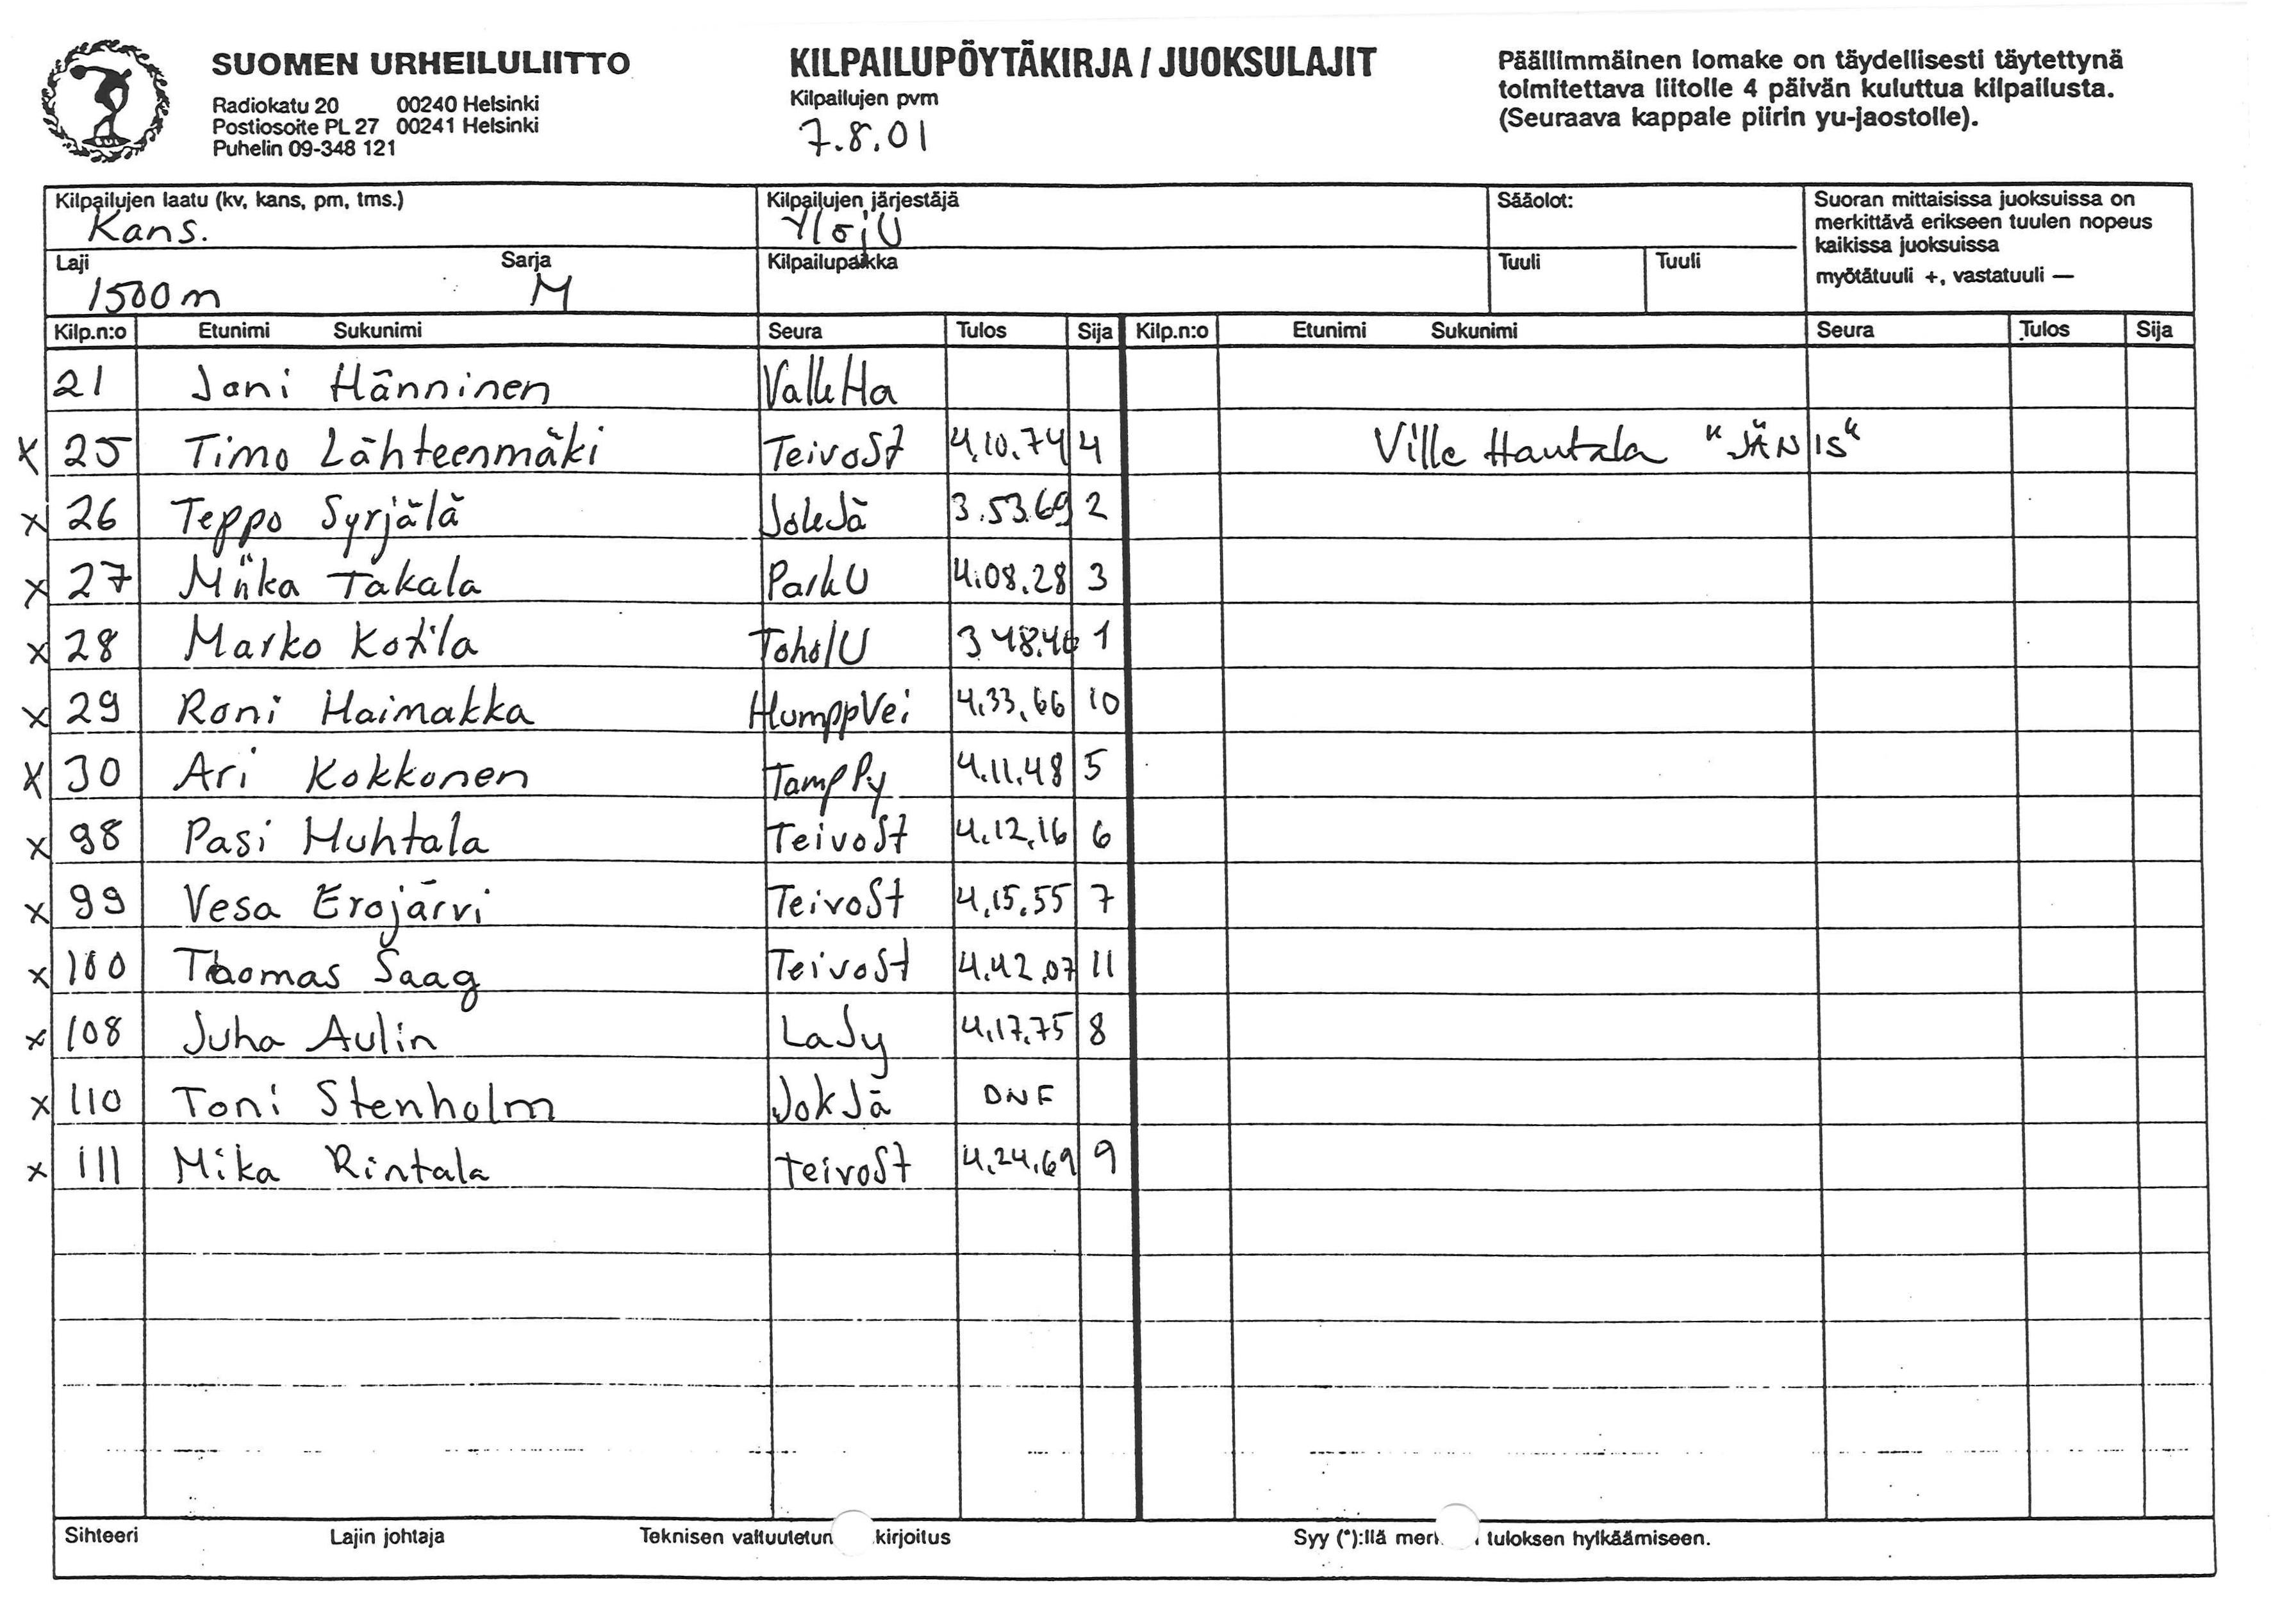 SUOMEN URHEILULIITTO
Radiokatu 20 00240 Helsinki
Postiosoite PL 27 00241 Helsinki
Puhelin 09-348 121
KILPAILUPÖYTÄKIRJA / JUOKSULAJIT
Kilpailujen pvm
7.8.01
Päällimmäinen lomake on täydellisesti täytettynä
toimitettava liitolle 4 päivän kuluttua kilpailusta.
(Seuraava kappale piirin yu-jaostolle).
Kilpailujen laatu (kv, kans, pm, tms.)
Kans.
Kilpailujen järjestäjä
YlöjU
Sääolot:
Suoran mittaisissa juoksuissa on
merkittävä erikseen tuulen nopeus
kaikissa juoksuissa
myötätuuli +, vastatuuli —
Laji Sarja
1500 m M
Kilpailupaikka
Tuuli Tuuli
Kilp.n:o Etunimi Sukunimi Seura Tulos Sija Kilp.n:o Etunimi Sukunimi Seura Tulos Sija
21 Jani Hänninen ValkHa
x 25 Timo Lähteenmäki TeivoSt 4.10.74 4 Ville Hautala "JÄNIS"
x 26 Teppo Syrjälä JokJä 3.53.69 2
x 27 Miika Takala ParkU 4.08.28 3
x 28 Marko Kotila ToholU 3 48.46 1
x 29 Roni Haimakka HumppVei 4.33.66 10
x 30 Ari Kokkonen TampPy 4.11.48 5
x 98 Pasi Huhtala TeivoSt 4.12.16 6
x 99 Vesa Erojärvi TeivoSt 4.15.55 7
x 100 Thomas Saag TeivoSt 4.42.07 11
x 108 Juha Aulin LaSy 4.17.75 8
x 110 Toni Stenholm JokJä DNF
x 111 Mika Rintala TeivoSt 4.24.69 9
Sihteeri Lajin johtaja Teknisen valtuutetun kirjoitus Syy (*):llä mer tuloksen hylkäämiseen.